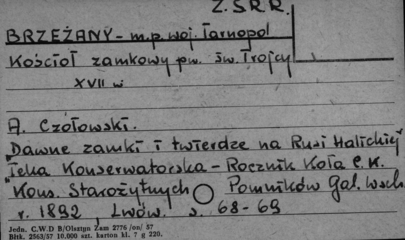 Z.S.R.R.
BRZEŻANY - m.p. woj. Tarnopol
Kościoł zamkowy pw. św. Trojcy
XVII w.
A. Czołowski.
"Dawne zamki i twierdze na Rusi Halickiej"
Teka Konserwatorska - Rocznik Koła C.K.
Kons. Starożytnych Pomników Gal. wsch.
r. 1892, Lwów. s. 68-69
Jedn. C.W.D B/Olsztyn Zam 2776/on/57
Bltk. 2563/57 10.000 szt. karton kl. 7 g 220.